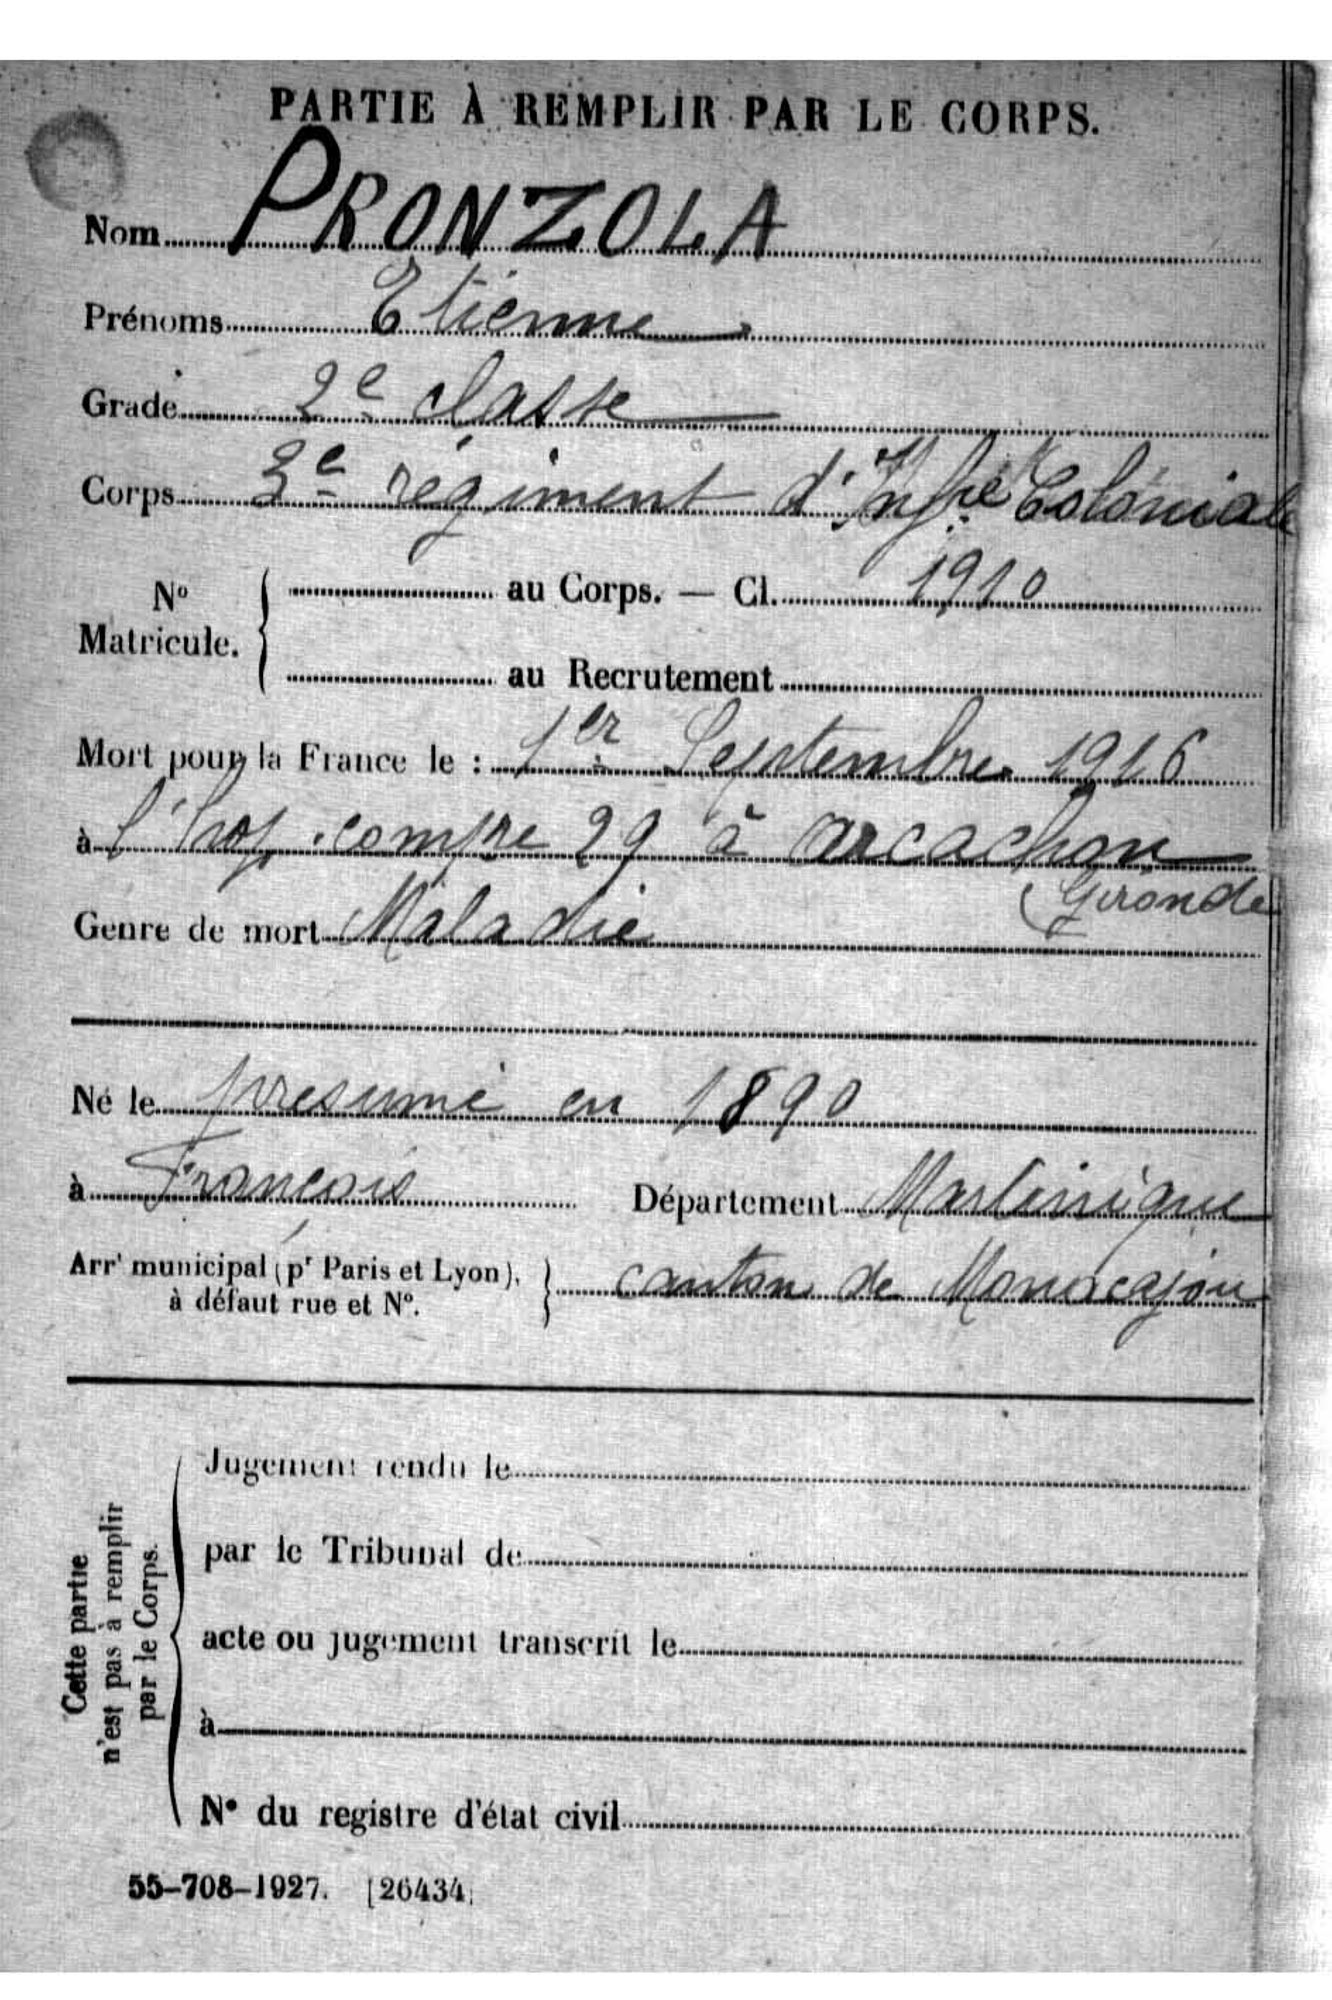 PARTIE À REMPLIR PAR LE CORPS.
Nom PRONZOLA
Prénoms Etienne
Grade 2e classe
Corps 3e régiment d'Infie Coloniale
No Matricule. { au Corps. — Cl. 1910
au Recrutement
Mort pour la France le : 1er Septembre 1916
à l'hop. compre 29 à arcachon
(Gironde
Genre de mort Maladie
Né le présumé en 1890
à François Département Martinique
Arrt municipal (pr Paris et Lyon), à défaut rue et No. } canton de Monacajou
Cette partie n'est pas à remplir par le Corps.
Jugement rendu le
par le Tribunal de
acte ou jugement transcrit le
à
No du registre d'état civil
55-708-1927. [26434]